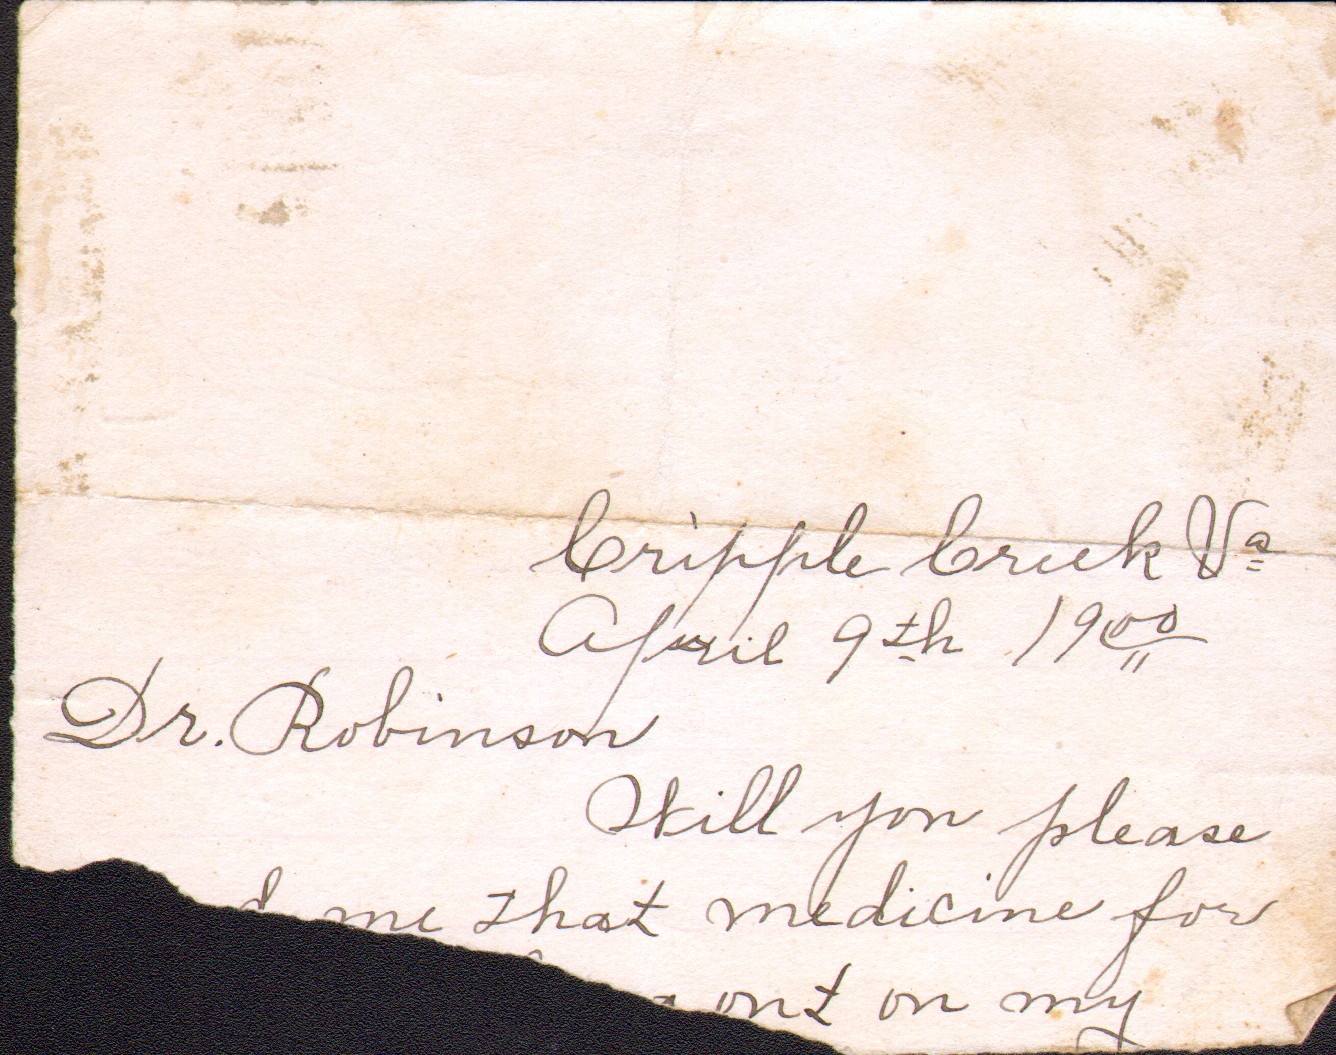 Cripple Creek Va
April 9th 1900
Dr. Robinson
Will you please
me that medicine for
out on my